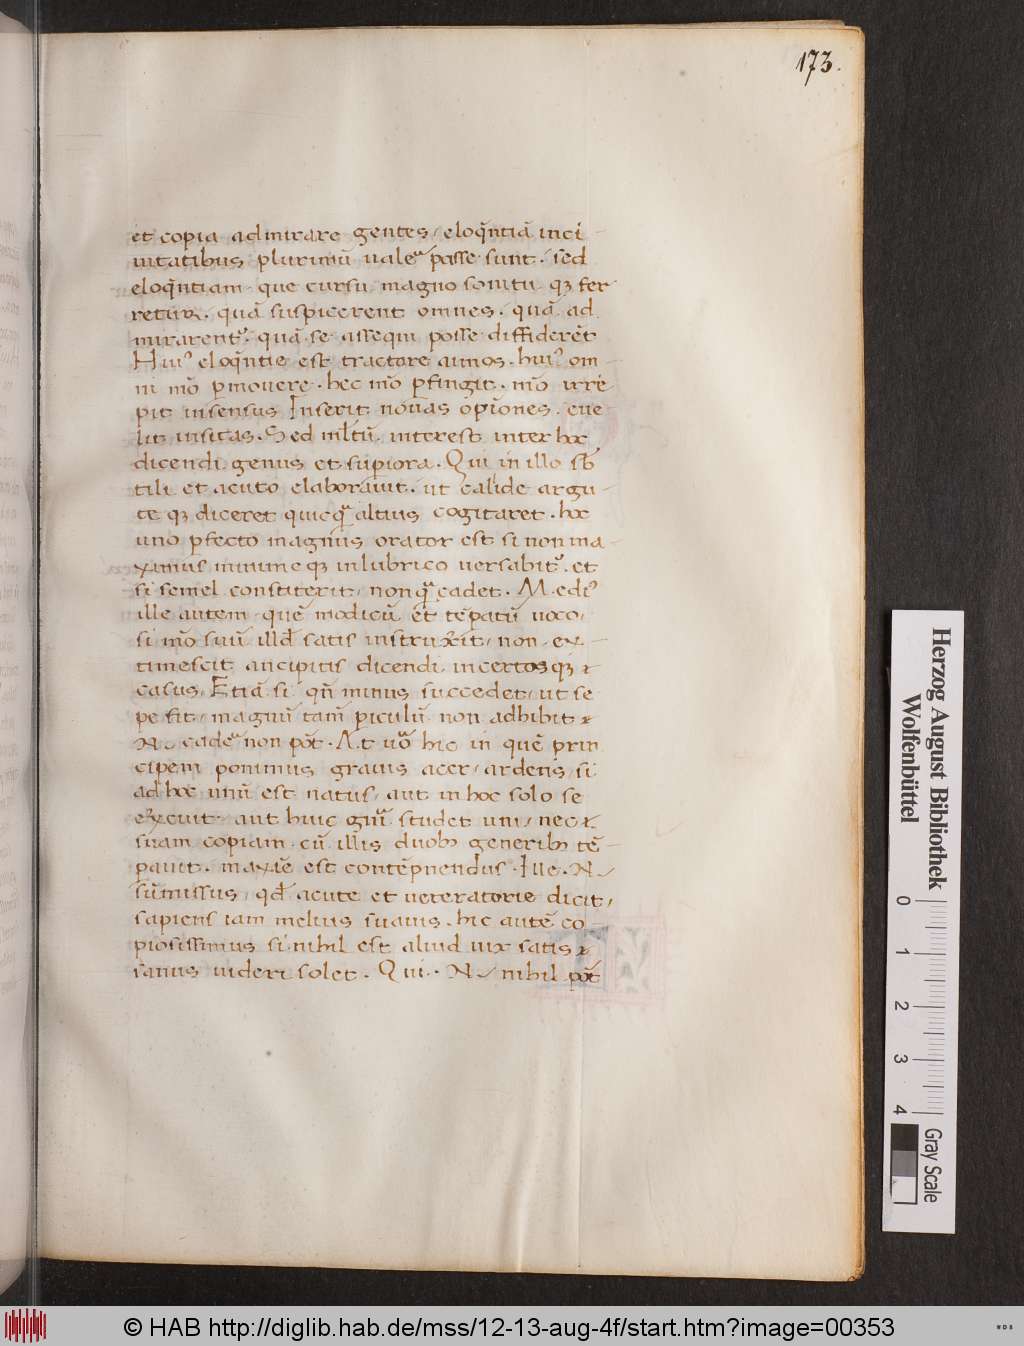 173.
et copia admirare gentes, eloq̄ntiā inci
uitatibus plurimū ualeᷣ passe sunt. sed
eloq̄ntiam que cursu magno sonitu qȝ fer
retur. quā suspicerent omnes. quā ad
mirarentᷣ. quā se assequi posse diffiderēt
Huiꝰ eloq̄ntie est tractare aīmos. huiꝰ om
ni mō ꝑmouere. hec mō ꝑfingit. mō irre
pit insensus Inserit nouas opīones. eue
lit insitas. Sed mltū interest inter hoc
dicendi genus et supiora. Qui in illo sb
tili et acuto elaborauit. ut calide argu
te qȝ diceret quicqᷓ altius cogitaret. hoc
uno ꝑfecto magnus orator est si non ma
ximus minime qȝ inlubrico uersabitᷣ. et
si semel constiterit, nonqᷓ cadet. Mediꝰ
ille autem, quē modicū et tēpatū uoco,
si mō suū illđ satis instruxit, non ex
timescit ancipitis dicendi incertos qȝ
casus, Etiā si qn̄ minus succedet, ut se
pe fit, magnū tam̄ piculū non adhibit
N cadeᷣ non pōt. At uᷣo hic in quē prin
cipem ponimus grauis acer, ardens, si
ad hoc unū est natus, aut in hoc solo se
exꝰcuit, aut huic gn̄i studet uni, nec
suam copiam cū illis duobȝ generibȝ tē
pauit. maxīe est contēpnendus. Ille. N
sūmissus, qđ acute et ueteratorie dicit,
sapiens iam melius suauis. hic autē co
piosissimus si nihil est aliud uix satis
sanus uideri solet. Qui. N nihil pōt
Herzog August Bibliothek
Wolfenbüttel
0 1 2 3 4
Gray Scale
© HAB http://diglib.hab.de/mss/12-13-aug-4f/start.htm?image=00353